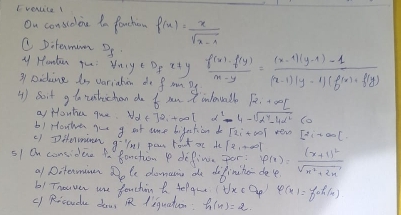 Exercice 1
On considère la fonction f(x) = x/√(x-1)
① Déterminer Df
2) Montrer que: ∀x,y ∈ Df x≠y (f(x)-f(y))/(x-y) = ((x-1)(y-1)-1)/((x-1)(y-1)(f(x)+f(y)))
3) Déduire les variation de f sur
4) Soit g la restriction de f sur l'intervalle [2;+∞[
a) Montrer que: ∀α∈]2;+∞[
b) Montrer que g est une bijection de [2;+∞[ vers [2;+∞[
c) Déterminer g⁻¹(x) pour tout x de [2;+∞[
5) On considère la fonction φ définie par: φ(x) = (x+1)²/√(x²+2x)
a) Déterminer Dφ le domaine de définition de φ.
b) Trouver une fonction h tel que: (∀x∈Dφ) φ(x) = foh(x)
c) Résoudre dans ℝ l'équation: h(x)=2